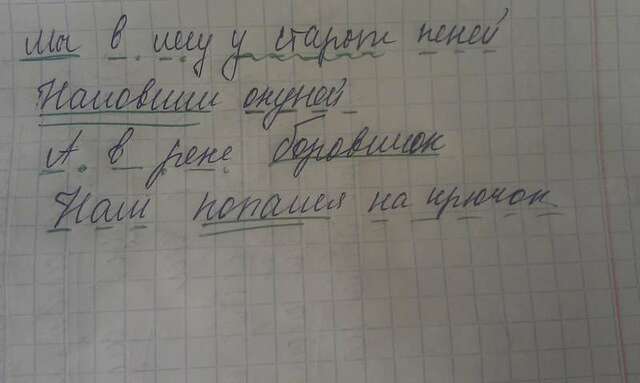 Мы в лесу у старых пеней
Наловили окуней
А в реке боровичок
Нам попался на крючок